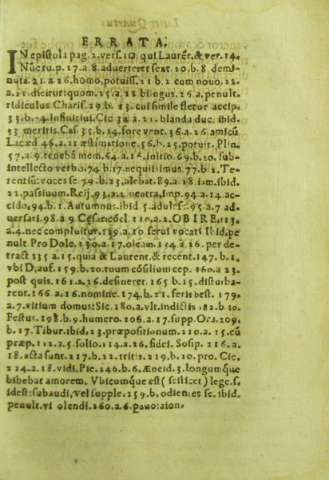 ERRATA.
IN epistola pag. 2. vers. 10. qui Laurēt. & ver. 14.
Nuctu.p. 17. a. 8 aduerteret sext. 20. b. 8 demi-
nuta. 21. a. 26. homo, potuiss. 21. b. 2 cum nouo. 22.
a. 21. dicitur: quom. 25. a. 22 bilogus. 26. a. penult.
ridiculus Charis. 29. b. 23. cui simile fletur accip.
35. b. 14 Infinitiui. Cic 38. a. 21. blanda duc. ibid.
33 meritis. Cas. 35. b. 14. fore vent. 36. a. 26 amicū
Lac. 46. a. 11 æstimatione. 56. b. 25. potuit. Plin.
57. a. 9. tenebō mem. 64. a. 16. initio. 69. b. 20. sub-
intellecto verbo. 74. b. 17. nequitimus. 77. b. 2. Te-
rentiū: voces se 79. b. 23, alebat. 89. a. 18. im. ibid.
22. passiuam. Reij. 93. a. 1 neutra, Imp. 94. a. 14 ac-
cido. 94. b. 1. Autumnus. ibid. 5 adulat: 95. a. 7 ad
uersari. 98. a 9 110. a. 2. OBIRE.
a. 4. nec compluitur. 139. a. 10 ferui vocati Ibid. pe-
nult Pro Dolo. 130. a. 17. oleam. 154. a 26. per de-
tract 135 a. 15. quia & Laurent. & recent. 147. b. 1.
vbi D. auf. 159. b. 20. tuum cōsilium cep. 160. a 23.
post quis. 161. a. 26. desineret. 165 b. 15. disturba-
recur. 166. a. 26. nomine. 174. b. 21. feris best. 179.
a. 7. vitium domus: Sic. 180. a. vlt. indictis 182. b. 10.
Festus. 198. b. 9. humero. 206. a. 17. supp. Ora. 209.
b. 17. Tibur. ibid. 23. præpositionum. 210. a. 15. cū
præp. 212. 25. folio. 214. a. 26. fidei. Sosip. 216. a.
18. acta sunt. 217. b. 22. tritis. 219. b. 10. pro. Cic.
224. a. 18. vidi. Pic. 246. b. 6. Æneid. 3. longumque
bibebat amorem. Vbicumque est ( lege. s.
idest: subaudi, vel supple. 259. b. odientes se. ibid.
penult. vi olendi. 260. a. 6.